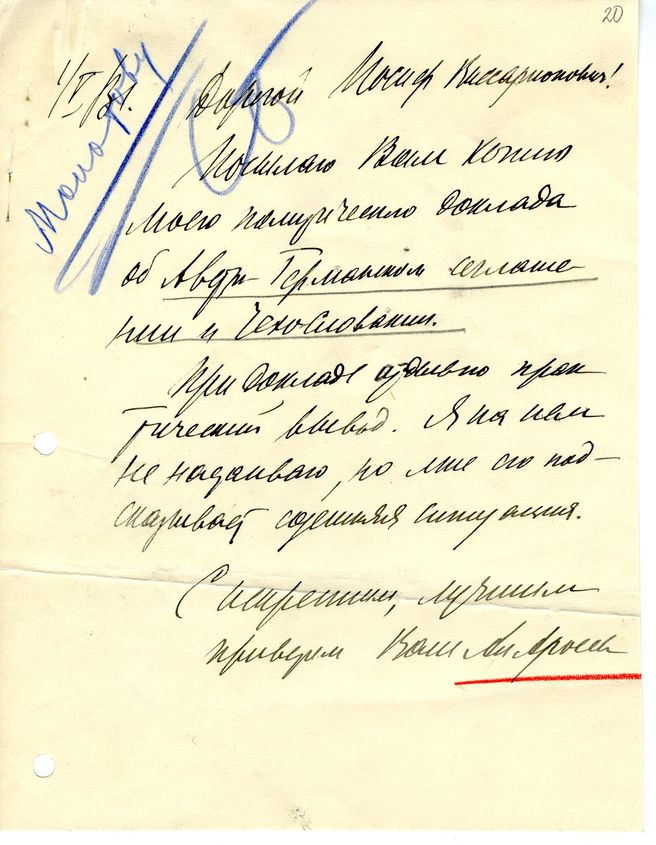 20
1/V 31.
Дорогой Иосиф Виссарионович!
Посылаю Вам копию
моего политического доклада
об Австро-Германском соглаше-
нии и Чехословакии.
При докладе отдельно прак-
тический вывод. Я на нем
не настаиваю, но мне его под-
сказывает здешняя ситуация.
С искренним, лучшим
приветом Ваш Ал Аросев